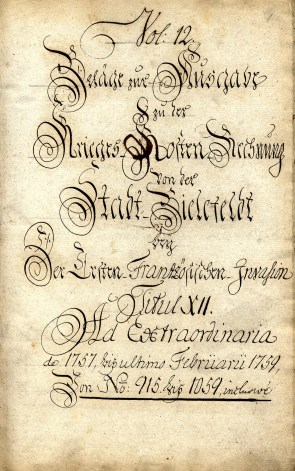 Vol: 12.
Beläge zur Ausgabe
zu der
Krieges-Kosten-Rechnung
von der
Stadt-Bielefeldt
bey
Der Ersten-Frantzösischen-Invasion
Titul XII.
Ad Extraordinaria
de 1757, biß ultimo Februarii 1759.
Von No: 915. biß 1059, inclusivé